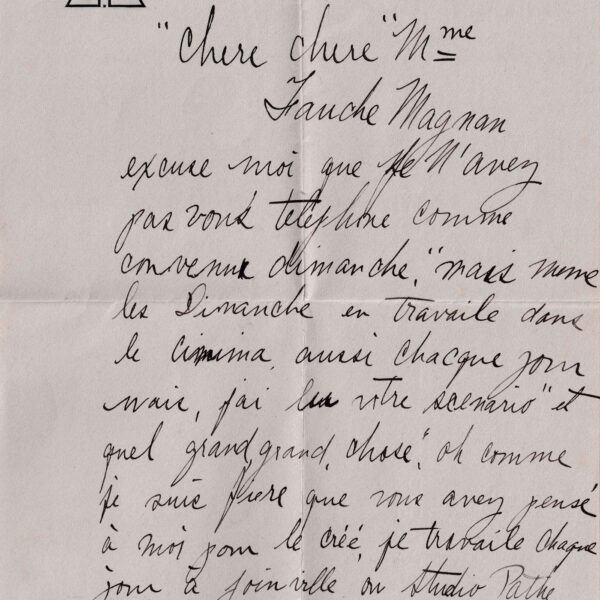 "Chere chere" Mme
Fauche Magnan
excuse moi que je N'avez
pas vous telephone comme
convenu dimanche, "mais meme
les Dimanche en travaile dans
le cinima, aussi chacque jour
mais, j'ai lu votre scenario" et
quel grand, grand, chose", oh comme
je suis fiere que vous avez pensé
à moi pour le créé, je travaile chaque
jour à Joinville au Studio Pathe